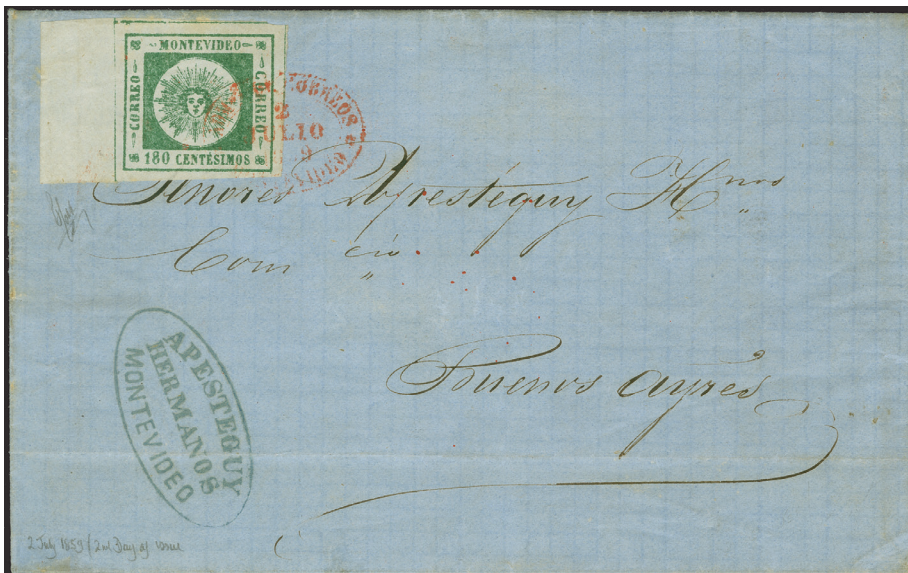 MONTEVIDEO
CORREO
CORREO
180 CENTÉSIMOS
CORREOS
2
JULIO
Señores Apestéguy Hnos
Com cio
Buenos Ayres
APESTEGUY
HERMANOS
MONTEVIDEO
2 July 1859 / 2nd Day of issue